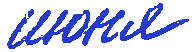 июня